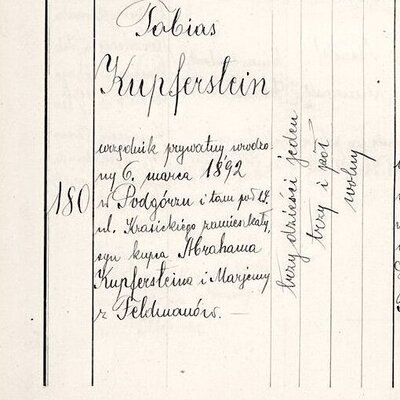 Tobias
Kupferstein
urzędnik prywatny urodzo-
ny 6. marca 1892
180
w Podgórzu i tam pod L.
ul. Krasickiego zamieszkały,
syn kupca Abrahama
Kupfersteina i Marjemy
z Feldmanów. —
trzydzieści jeden
trzy i pół
wolny